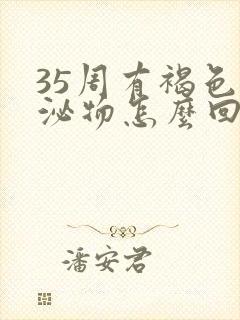 35周有褐色
泌物怎麼回
潘安君